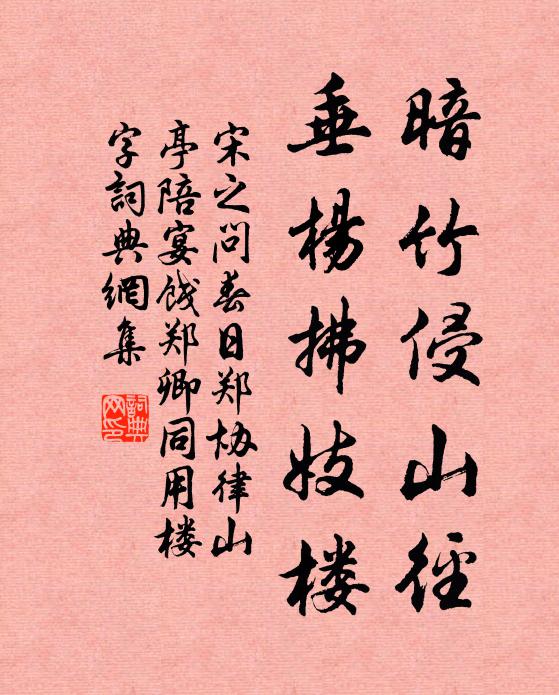 暗竹侵山徑
垂楊拂妓楼
宋之问春日郑协律山
亭陪宴饯郑卿同用楼
字詞典網集
詞典网印